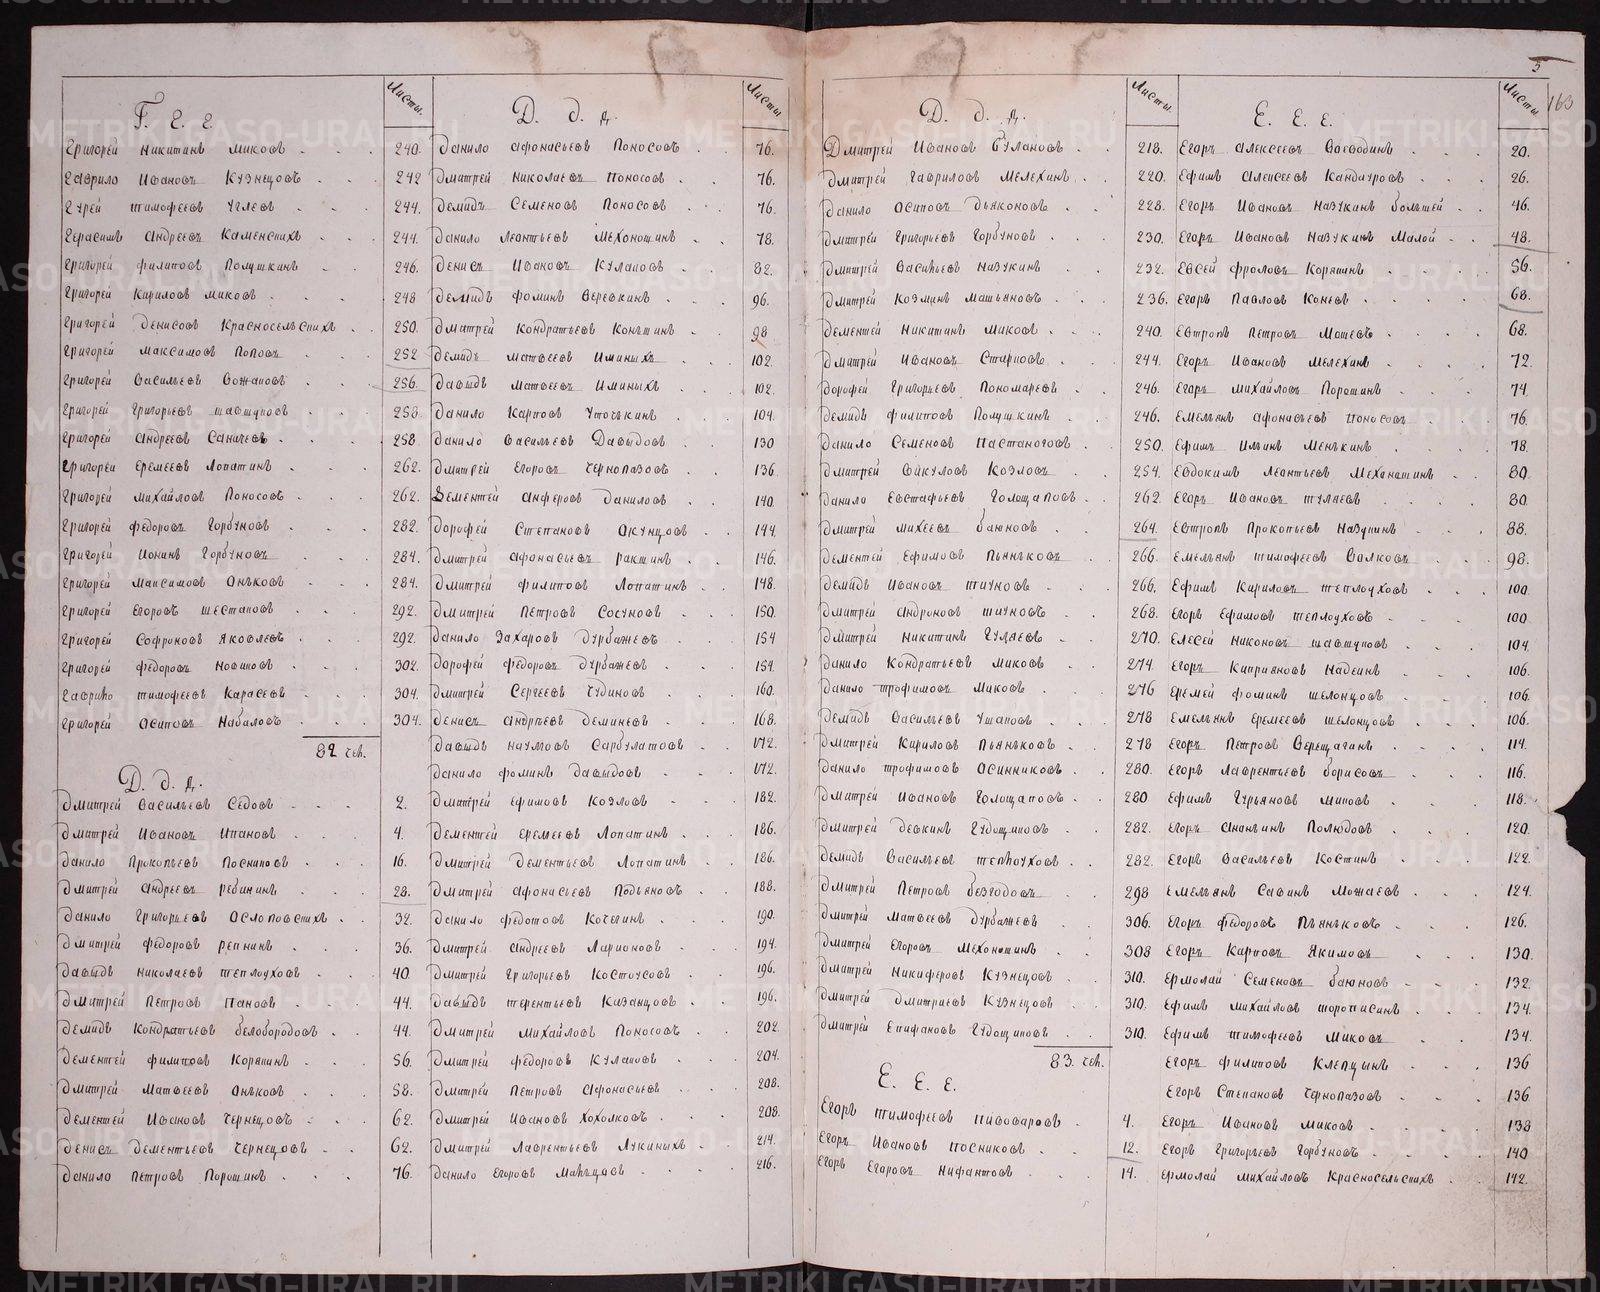 3
163
Листы.
Г. г. г.
Григорей Никитинъ Миковъ 240.
Гаврило Ивановъ Кузнецовъ 242
Гурей Тимофеевъ Углевъ 244.
Герасимъ Андреевъ Каменскихъ 244.
Григорей Филиповъ Полушкинъ 246.
Григорей Кириловъ Миковъ 248
Григорей Денисовъ Красносельскихъ 250.
Григорей Максимовъ Поповъ 252
Григорей Васильевъ Вожаковъ 256.
Григорей Григорьевъ Шавшуковъ 258.
Григорей Андреевъ Саничевъ 258.
Григорей Еремеевъ Лопатинъ 262.
Григорей Михайловъ Поносовъ 262.
Григорей Федоровъ Горбуновъ 282.
Григорей Ионинъ Горбуновъ 284.
Григорей Максимовъ Оньковъ 284.
Григорей Егоровъ Шестаковъ 292.
Григорей Софроновъ Яковлевъ 292.
Григорей Федоровъ Носиковъ 302.
Гаврило Тимофеевъ Карасевъ 304.
Григорей Осиповъ Набаловъ 304.
82 чел.
Д. д. д.
Дмитрей Васильевъ Седовъ 2.
Дмитрей Ивановъ Ипановъ 4.
Данило Прокопьевъ Посниковъ 16.
Дмитрей Андреевъ Ребининъ 28.
Данило Григорьевъ Ослоповскихъ 32.
Дмитрей Федоровъ Репнинъ 36.
Давыдъ Николаевъ Теплоуховъ 40.
Дмитрей Петровъ Пановъ 44.
Демидъ Кондратьевъ Белобородовъ 44.
Дементей Филиповъ Корякинъ 56.
Дмитрей Матвеевъ Оньковъ 58.
Дементей Ивановъ Чернецовъ 62.
Денисъ Дементьевъ Чернецовъ 62.
Данило Петровъ Порошинъ 76.
Листы
Д. д. д.
Данило Афонасьевъ Поносовъ 76.
Дмитрей Николаевъ Поносовъ 76.
Демидъ Семеновъ Поносовъ 76.
Данило Леонтьевъ Мехоношинъ 78.
Денисъ Ивановъ Кулаковъ 82.
Демидъ Фоминъ Веревкинъ 96.
Дмитрей Кондратьевъ Коньшинъ 98
Демидъ Матвеевъ Иминыхъ 102.
Давыдъ Матвеевъ Иминыхъ 102.
Данило Карповъ Уточкинъ 104.
Данило Васильевъ Давыдовъ 130
Дмитрей Егоровъ Чернопазовъ 136.
Дементей Анферовъ Даниловъ 140.
Дорофей Степановъ Окунцовъ 144.
Дмитрей Афонасьевъ Ракшинъ 146.
Дмитрей Филиповъ Лопатинъ 148.
Дмитрей Петровъ Сосуновъ 150.
Данило Захаровъ Дурбажевъ 154
Дорофей Федоровъ Дурбажевъ 154.
Дмитрей Сергеевъ Чудиновъ 160.
Денисъ Андреевъ Деминевъ 168.
Давыдъ Наумовъ Сарбулатовъ 172.
Данило Фоминъ Давыдовъ 172.
Дмитрей Ефимовъ Козловъ 182.
Дементей Еремеевъ Лопатинъ 186.
Дмитрей Дементьевъ Лопатинъ 186.
Дмитрей Афонасьевъ Подьяновъ 188.
Данило Федотовъ Кочегинъ 190.
Дмитрей Андреевъ Ларионовъ 194.
Дмитрей Григорьевъ Костоусовъ 196.
Давыдъ Терентьевъ Казанцовъ 196.
Дмитрей Михайловъ Поносовъ 202.
Дмитрей Федоровъ Кулаковъ 204.
Дмитрей Петровъ Афонасьевъ 208.
Дмитрей Ивановъ Хохолковъ 208.
Дмитрей Лаврентьевъ Лукиныхъ 214.
Данило Егоровъ Мальцовъ 216.
Листы.
Д. д. д.
Дмитрей Ивановъ Булановъ 218.
Дмитрей Гавриловъ Мелехинъ 220.
Данило Осиповъ Дьяконовъ 228.
Дмитрей Григорьевъ Горбуновъ 230.
Дмитрей Васильевъ Назукинъ 232.
Дмитрей Козминъ Машьяновъ 236.
Дементей Никитинъ Миковъ 240.
Дмитрей Ивановъ Старковъ 244.
Дорофей Григорьевъ Пономаревъ 246.
Демидъ Филиповъ Полушкинъ 246.
Данило Семеновъ Пастаноговъ 250.
Дмитрей Викуловъ Козловъ 254.
Данило Евстафьевъ Голощаповъ 262
Дмитрей Михеевъ Баюновъ 264.
Дементей Ефимовъ Пьянковъ 266.
Демидъ Ивановъ Тиуновъ 266.
Дмитрей Андроновъ Тиуновъ 268.
Дмитрей Никитинъ Гуляевъ 270.
Данило Кондратьевъ Миковъ 274.
Данило Трофимовъ Миковъ 276
Демидъ Васильевъ Ушаковъ 278
Дмитрей Кириловъ Пьянковъ 278
Данило Трофимовъ Осинниковъ 280.
Дмитрей Ивановъ Голощаповъ 280
Дмитрей Девкинъ Гудощиковъ 282.
Демидъ Васильевъ Теплоуховъ 282.
Дмитрей Петровъ Безгодовъ 298
Дмитрей Матвеевъ Дурбажевъ 306.
Дмитрей Егоровъ Мехоношинъ 308
Дмитрей Никифоровъ Кузнецовъ 310.
Дмитрей Дмитриевъ Кузнецовъ 310.
Дмитрей Епифановъ Гудощиковъ 310.
83. чел.
Е. Е. Е.
Егоръ Тимофеевъ Пивоваровъ 4.
Егоръ Ивановъ Посниковъ 12.
Егоръ Егоровъ Нифантовъ 14.
Листы
Е. Е. Е.
Егоръ Алексеевъ Воеводинъ 20.
Ефимъ Алексеевъ Кандауровъ 26.
Егоръ Ивановъ Назукинъ Большей 46.
Егоръ Ивановъ Назукинъ Малой 48.
Евсей Фроловъ Корякинъ 56.
Егоръ Павловъ Коневъ 68.
Евтропъ Петровъ Мошевъ 68.
Егоръ Ивановъ Мелехинъ 72.
Егоръ Михайловъ Порошинъ 74.
Емельянъ Афонасьевъ Поносовъ 76.
Ефимъ Ильинъ Менькинъ 78.
Евдокимъ Леонтьевъ Механошинъ 80.
Егоръ Ивановъ Туляевъ 80.
Евтропъ Прокопьевъ Назукинъ 88.
Емельянъ Тимофеевъ Волковъ 98.
Ефимъ Кириловъ Теплоуховъ 100
Егоръ Ефимовъ Теплоуховъ 100
Елесей Никоновъ Шавшуковъ 104.
Егоръ Киприяновъ Надеинъ 106.
Еремей Фоминъ Шелонцовъ 106.
Емельянъ Еремеевъ Шелонцовъ 106.
Егоръ Петровъ Верещагинъ 114.
Егоръ Лаврентьевъ Борисовъ 116.
Ефимъ Гурьяновъ Миковъ 118.
Егоръ Ананьинъ Полюдовъ 120.
Егоръ Васильевъ Костинъ 122.
Емельянъ Савинъ Можаевъ 124.
Егоръ Федоровъ Пьянковъ 126.
Егоръ Карповъ Якимовъ 130.
Ермолай Семеновъ Баюновъ 132.
Ефимъ Михайловъ Торописинъ 134.
Ефимъ Тимофеевъ Миковъ 134.
Егоръ Филиповъ Клепцынъ 136
Егоръ Степановъ Чернопазовъ 136
Егоръ Ивановъ Миковъ 138
Егоръ Григорьевъ Горбуновъ 140
Ермолай Михайловъ Красносельскихъ 142.
METRIKI.GASO-URAL.RU